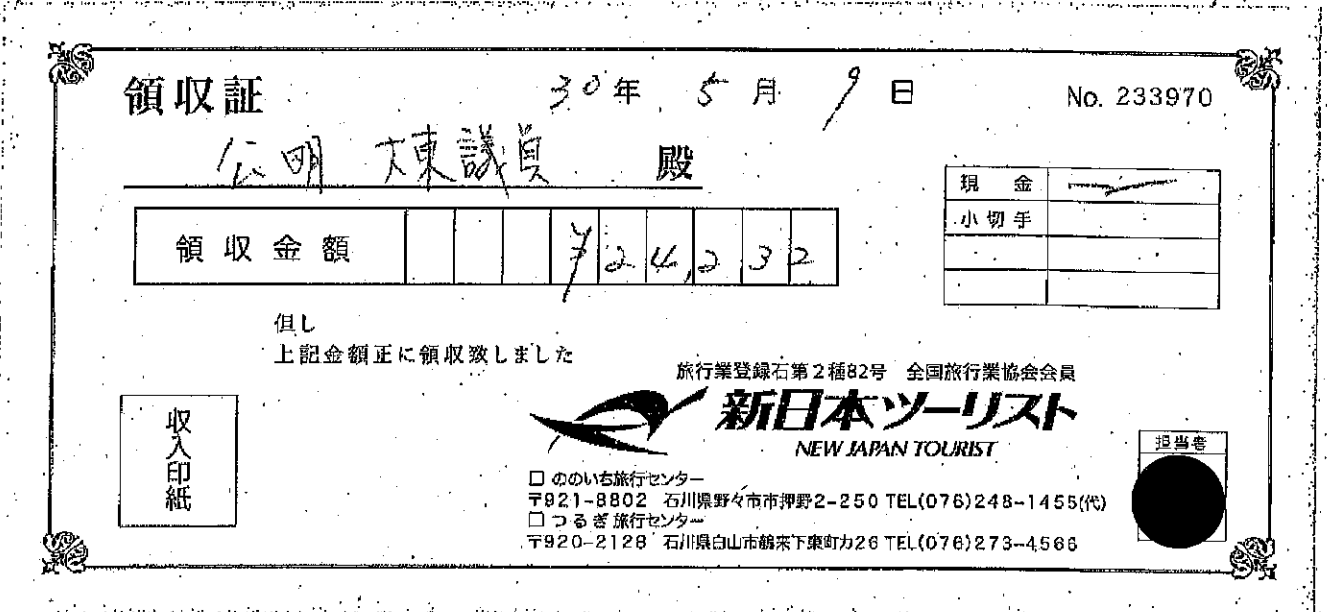 領収証 30年 5月 9日 No. 233970
公明 大東議員 殿
現金
小切手
領収金額 ¥24,232
但し
上記金額正に領収致しました
旅行業登録石第2種82号 全国旅行業協会会員
新日本ツーリスト
NEW JAPAN TOURIST
収入印紙
担当者
□ ののいち旅行センター
〒921-8802 石川県野々市市押野2-250 TEL(076)248-1455(代)
□ つるぎ旅行センター
〒920-2128 石川県白山市鶴来下東町カ26 TEL(076)273-4566